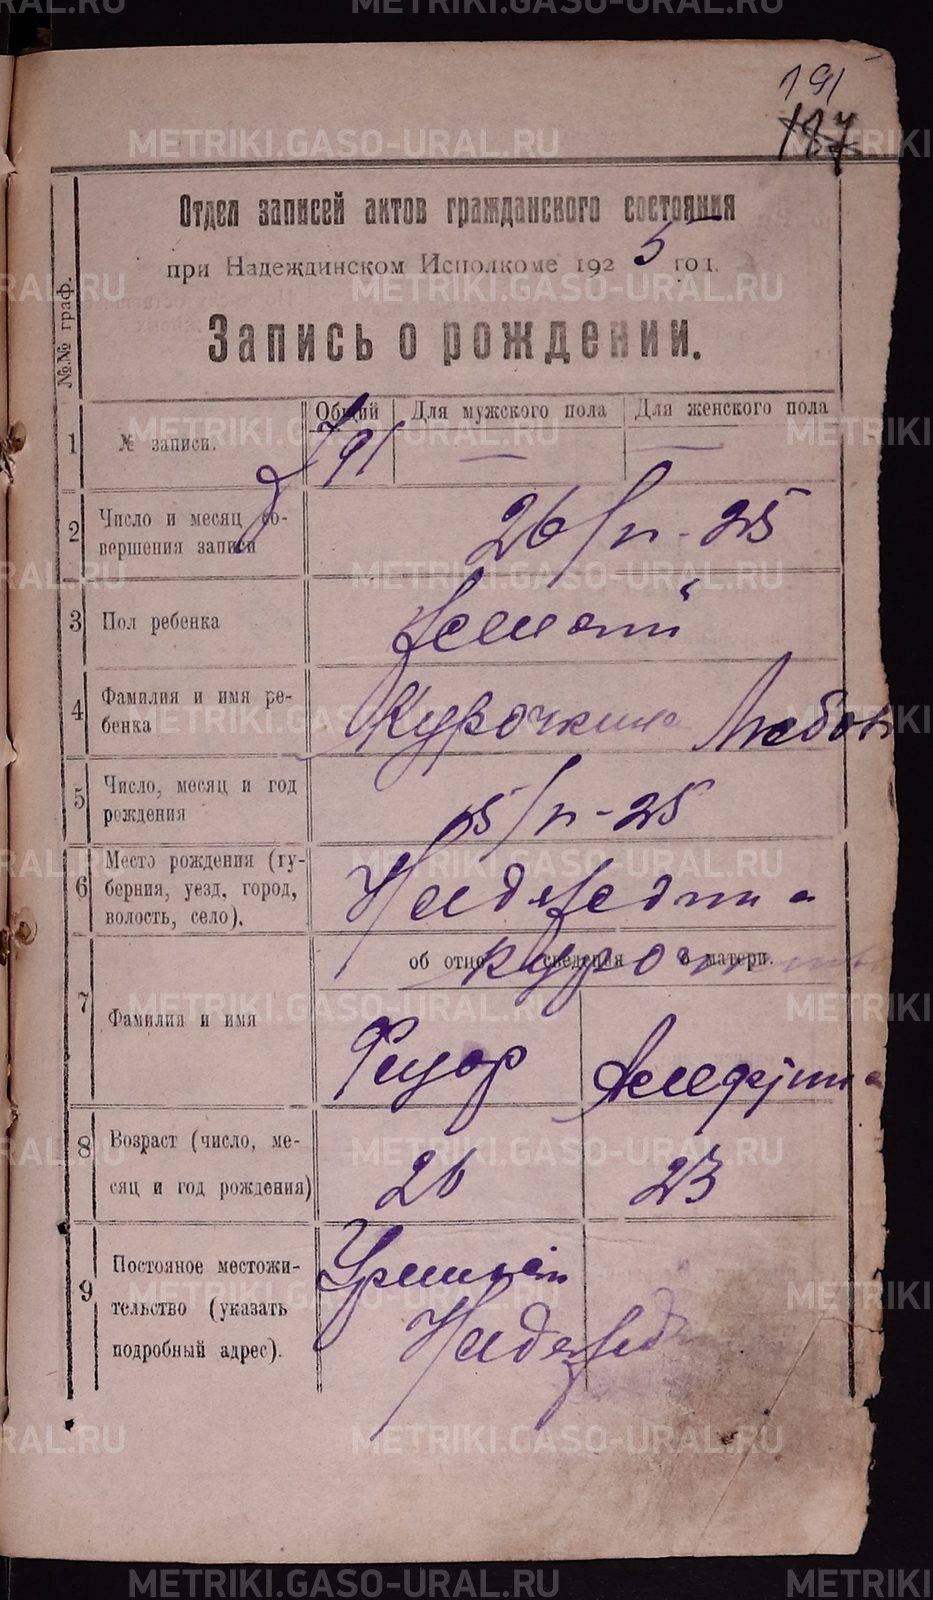 METRIKI.GASO-URAL.RU
191
187
METRIKI.GASO-URAL.RU
Отдел записей актов гражданского состояния
при Надеждинском Исполкоме 1925 год.
Запись о рождении.
№№ граф.
Общий Для мужского пола Для женского пола
1 № записи. 191 — —
2 Число и месяц со-
вершения записи
26/II-25
3 Пол ребенка Женский
4 Фамилия и имя ре-
бенка
Курочкина Любовь
5 Число, месяц и год
рождения
15/II-25
6 Место рождения (гу-
берния, уезд, город,
волость, село).
об отце сведения о матери.
7 Фамилия и имя
8 Возраст (число, ме-
сяц и год рождения)
26 23
9 Постояное местожи-
тельство (указать
подробный адрес).
METRIKI.GASO-URAL.RU